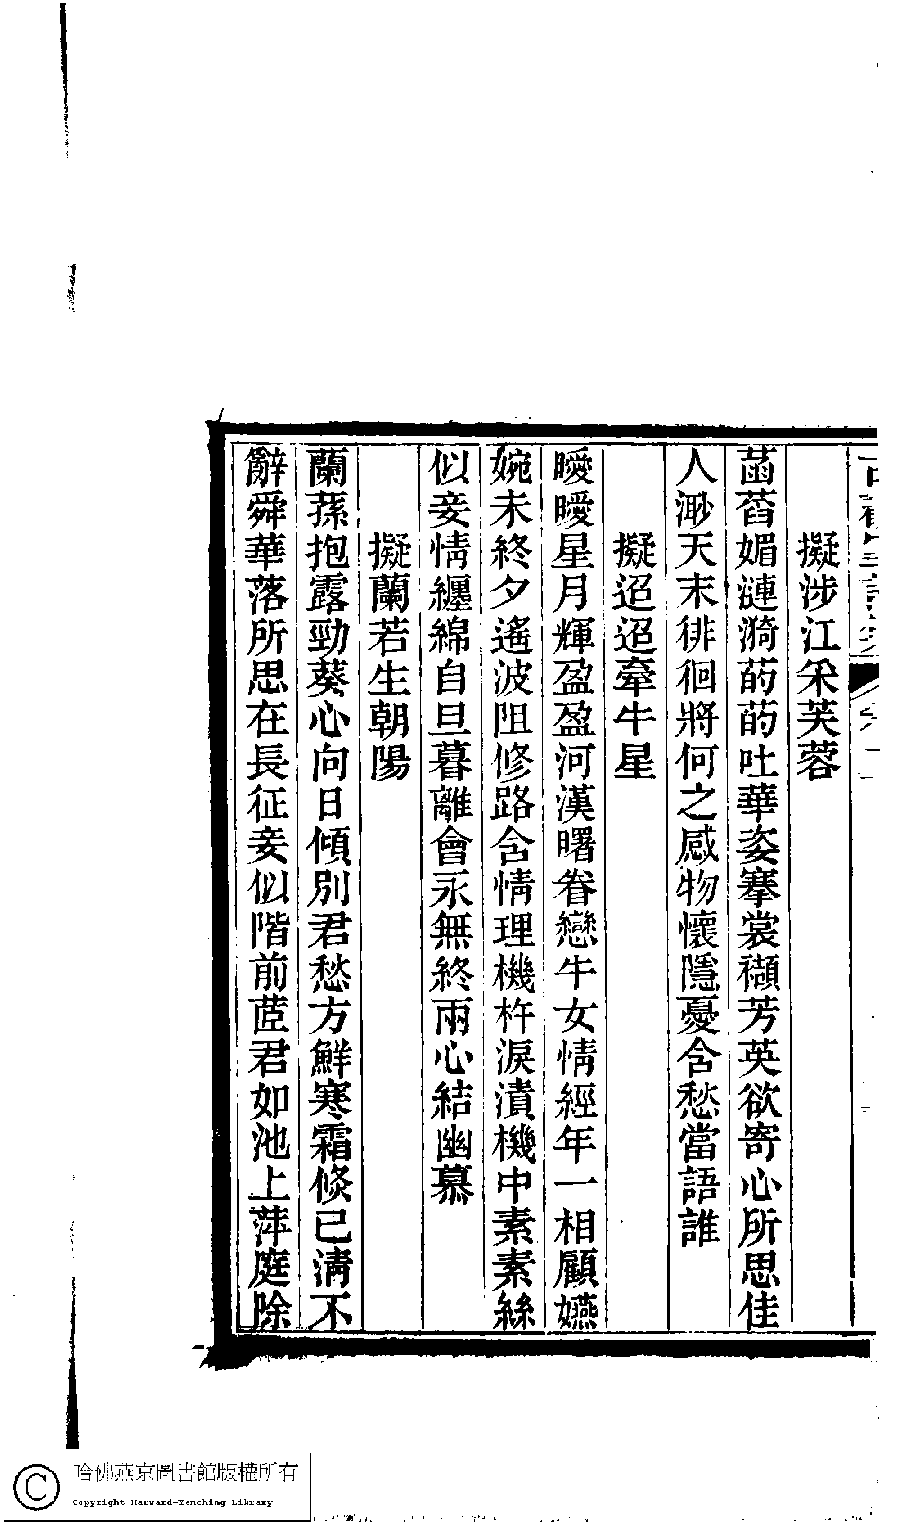 擬涉江采芙蓉
菡萏媚漣漪菂菂吐華姿搴裳襭芳英欲寄心所思佳
人渺天末徘徊將何之感物懷隱憂含愁當語誰
擬迢迢牽牛星
曖曖星月輝盈盈河漢曙眷戀牛女情經年一相顧嬿
婉未終夕遙波阻修路含情理機杼淚漬機中素素絲
似妾情纏綿自旦暮離會永無終兩心結幽慕
擬蘭若生朝陽
蘭蓀抱露勁葵心向日傾別君愁方鮮寒霜倏已淸不
辭舜華落所思在長征妾似階前茝君如池上萍庭除
哈佛燕京圖書館版權所有
Copyright Harvard-Yenching Library